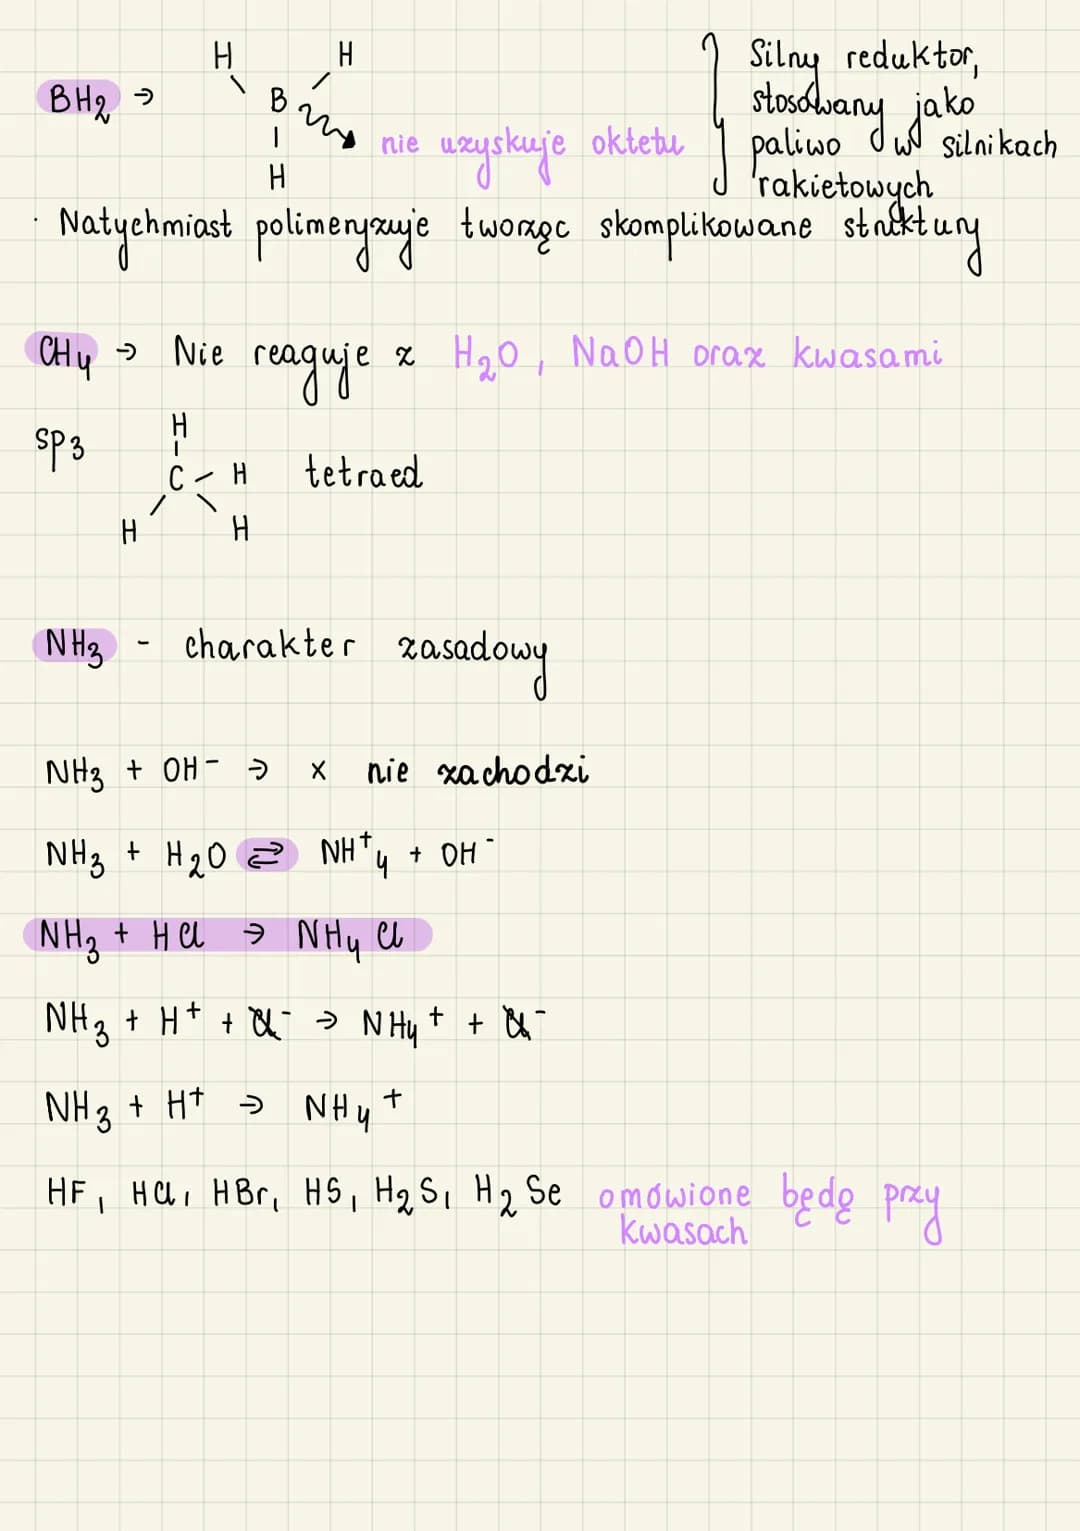 H H
BH2 → B nie uzyskuje oktetu
H
Silny reduktor,
stosowany jako
paliwo w silnikach
rakietowych
· Natychmiast polimeryzuje tworząc skomplikowane struktury
CH4 → Nie reaguje z H2O, NaOH oraz kwasami
sp3
H
C - H tetraed
H H
NH3 - charakter zasadowy
NH3 + OH- → x nie zachodzi
NH3 + H2O ⇄ NH+4 + OH-
NH3 + HCl → NH4Cl
NH3 + H+ + Cl- → NH4+ + Cl-
NH3 + H+ → NH4+
HF, HCl, HBr, HS, H2S, H2Se omówione będę przy
kwasach